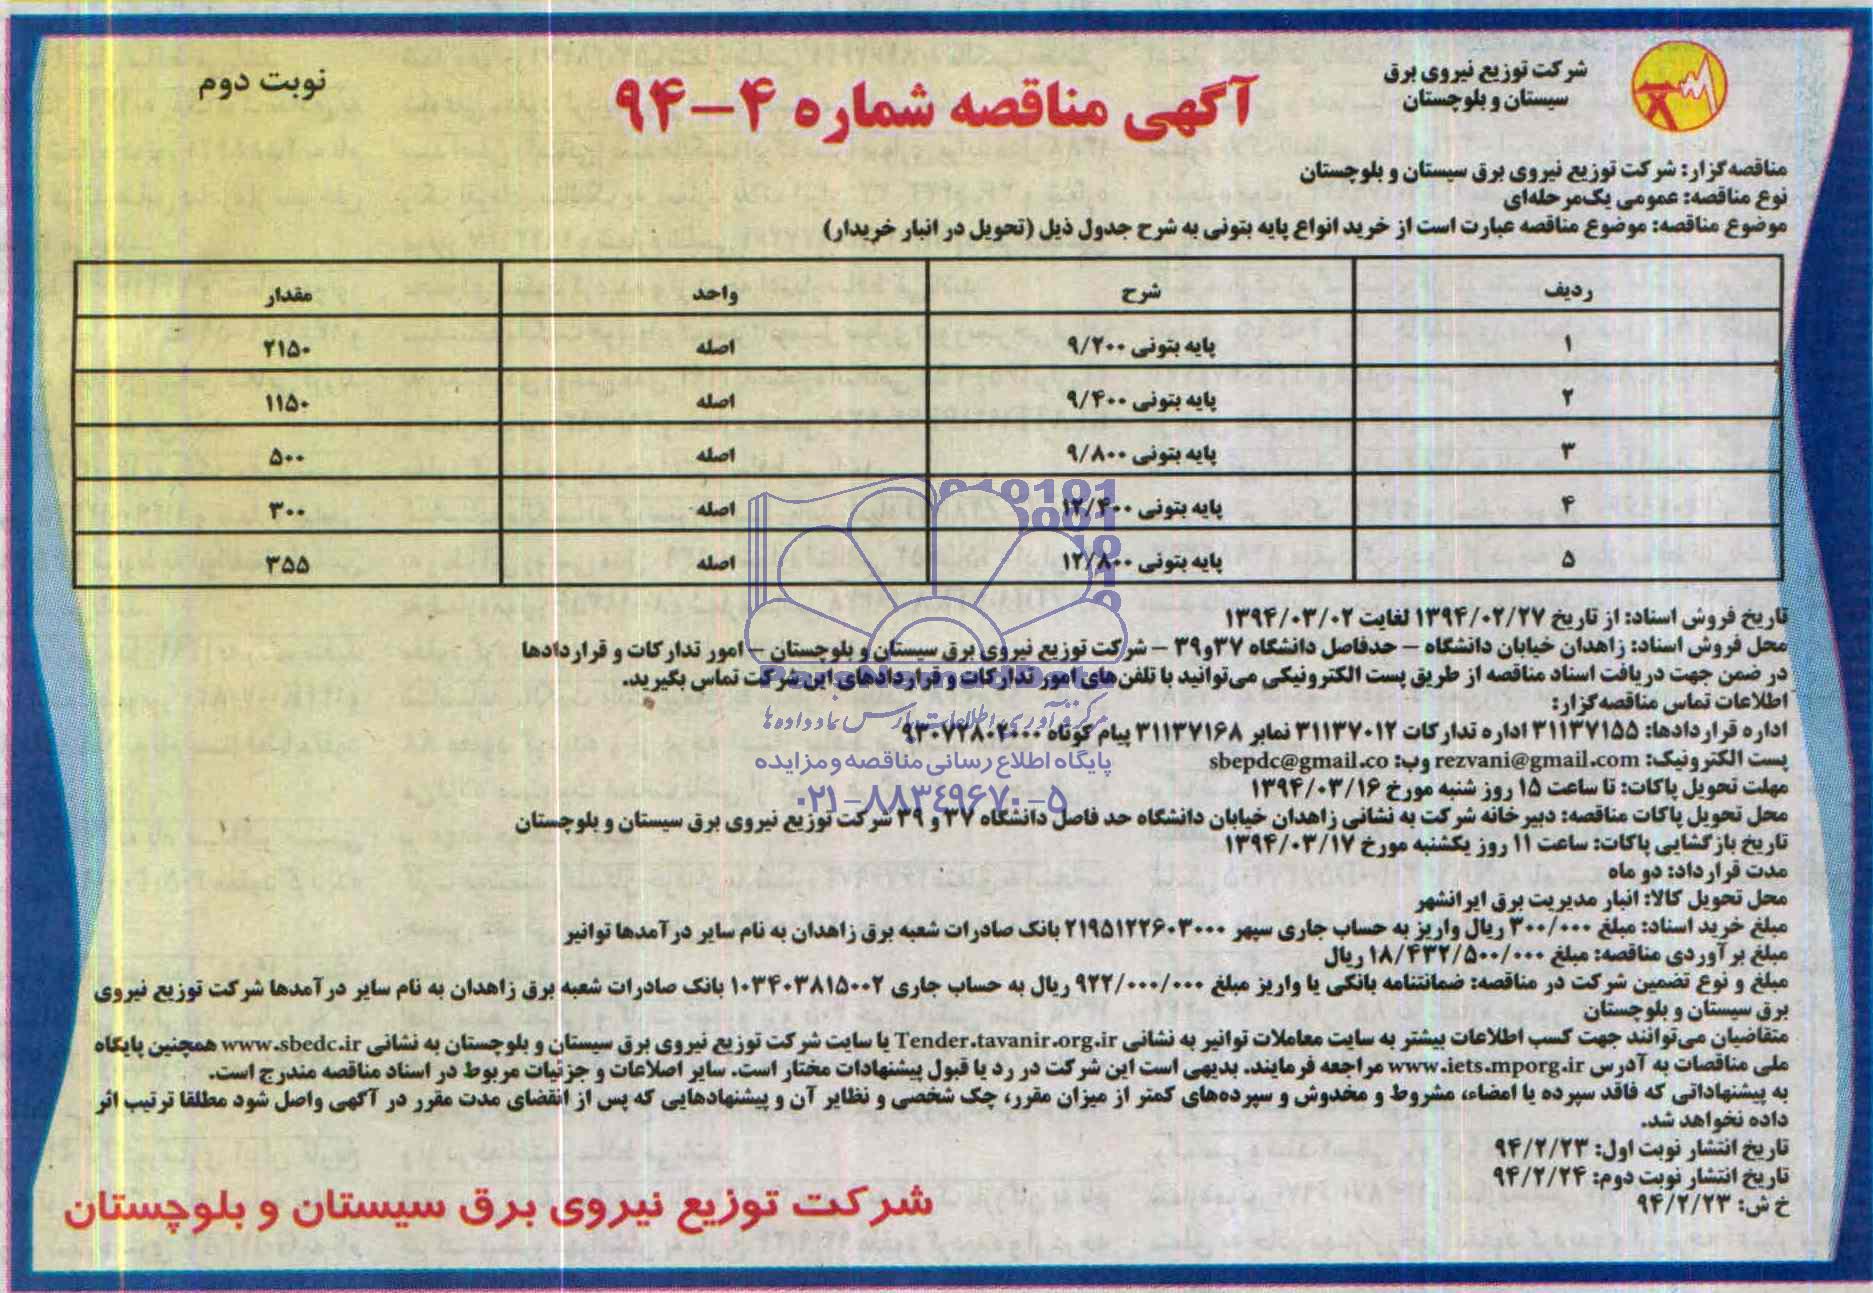 شرکت توزیع نیروی برق
سیستان و بلوچستان
آگهی مناقصه شماره ۴-۹۴
نوبت دوم
مناقصه‌گزار: شرکت توزیع نیروی برق سیستان و بلوچستان
نوع مناقصه: عمومی یک‌مرحله‌ای
موضوع مناقصه: موضوع مناقصه عبارت است از خرید انواع پایه بتونی به شرح جدول ذیل (تحویل در انبار خریدار)
ردیف شرح واحد مقدار
۱ پایه بتونی ۹/۲۰۰ اصله ۲۱۵۰
۲ پایه بتونی ۹/۴۰۰ اصله ۱۱۵۰
۳ پایه بتونی ۹/۸۰۰ اصله ۵۰۰
۴ پایه بتونی ۱۲/۴۰۰ اصله ۳۰۰
۵ پایه بتونی ۱۲/۸۰۰ اصله ۳۵۵
تاریخ فروش اسناد: از تاریخ ۱۳۹۴/۰۲/۲۷ لغایت ۱۳۹۴/۰۳/۰۲
محل فروش اسناد: زاهدان خیابان دانشگاه – حدفاصل دانشگاه ۳۷و۳۹ – شرکت توزیع نیروی برق سیستان و بلوچستان – امور تدارکات و قراردادها
در ضمن جهت دریافت اسناد مناقصه از طریق پست الکترونیکی می‌توانید با تلفن‌های امور تدارکات و قراردادهای این شرکت تماس بگیرید.
اطلاعات تماس مناقصه‌گزار:
اداره قراردادها: ۳۱۱۳۷۱۵۵ اداره تدارکات ۳۱۱۳۷۰۱۲ نمابر ۳۱۱۳۷۱۶۸ پیام کوتاه
پست الکترونیک: rezvani@gmail.com وب: sbepdc@gmail.co
مرکز فرآوری اطلاعات پارس نماد داده‌ها
پایگاه اطلاع رسانی مناقصه و مزایده
۰۲۱-۸۸۳۴۹۶۷۰-۵
مهلت تحویل پاکات: تا ساعت ۱۵ روز شنبه مورخ ۱۳۹۴/۰۳/۱۶
محل تحویل پاکات مناقصه: دبیرخانه شرکت به نشانی زاهدان خیابان دانشگاه حد فاصل دانشگاه ۳۷ و ۳۹ شرکت توزیع نیروی برق سیستان و بلوچستان
تاریخ بازگشایی پاکات: ساعت ۱۱ روز یکشنبه مورخ ۱۳۹۴/۰۳/۱۷
مدت قرارداد: دو ماه
محل تحویل کالا: انبار مدیریت برق ایرانشهر
مبلغ خرید اسناد: مبلغ ۳۰۰/۰۰۰ ریال واریز به حساب جاری سپهر ۲۱۹۵۱۲۲۶۰۳۰۰۰ بانک صادرات شعبه برق زاهدان به نام سایر درآمدها توانیر
مبلغ برآوردی مناقصه: مبلغ ۱۸/۴۳۲/۵۰۰/۰۰۰ ریال
مبلغ و نوع تضمین شرکت در مناقصه: ضمانتنامه بانکی یا واریز مبلغ ۹۲۲/۰۰۰/۰۰۰ ریال به حساب جاری ۱۰۳۴۰۳۸۱۵۰۰۲ بانک صادرات شعبه برق زاهدان به نام سایر درآمدها شرکت توزیع نیروی
برق سیستان و بلوچستان
متقاضیان می‌توانند جهت کسب اطلاعات بیشتر به سایت معاملات توانیر به نشانی Tender.tavanir.org.ir یا سایت شرکت توزیع نیروی برق سیستان و بلوچستان به نشانی www.sbedc.ir همچنین پایگاه
ملی مناقصات به آدرس www.iets.mporg.ir مراجعه فرمایند. بدیهی است این شرکت در رد یا قبول پیشنهادات مختار است. سایر اصلاعات و جزئیات مربوط در اسناد مناقصه مندرج است.
به پیشنهاداتی که فاقد سپرده یا امضاء، مشروط و مخدوش و سپرده‌های کمتر از میزان مقرر، چک شخصی و نظایر آن و پیشنهادهایی که پس از انقضای مدت مقرر در آگهی واصل شود مطلقا ترتیب اثر
داده نخواهد شد.
تاریخ انتشار نوبت اول: ۹۴/۲/۲۳
تاریخ انتشار نوبت دوم: ۹۴/۲/۲۴
خ ش: ۹۴/۲/۲۳
شرکت توزیع نیروی برق سیستان و بلوچستان